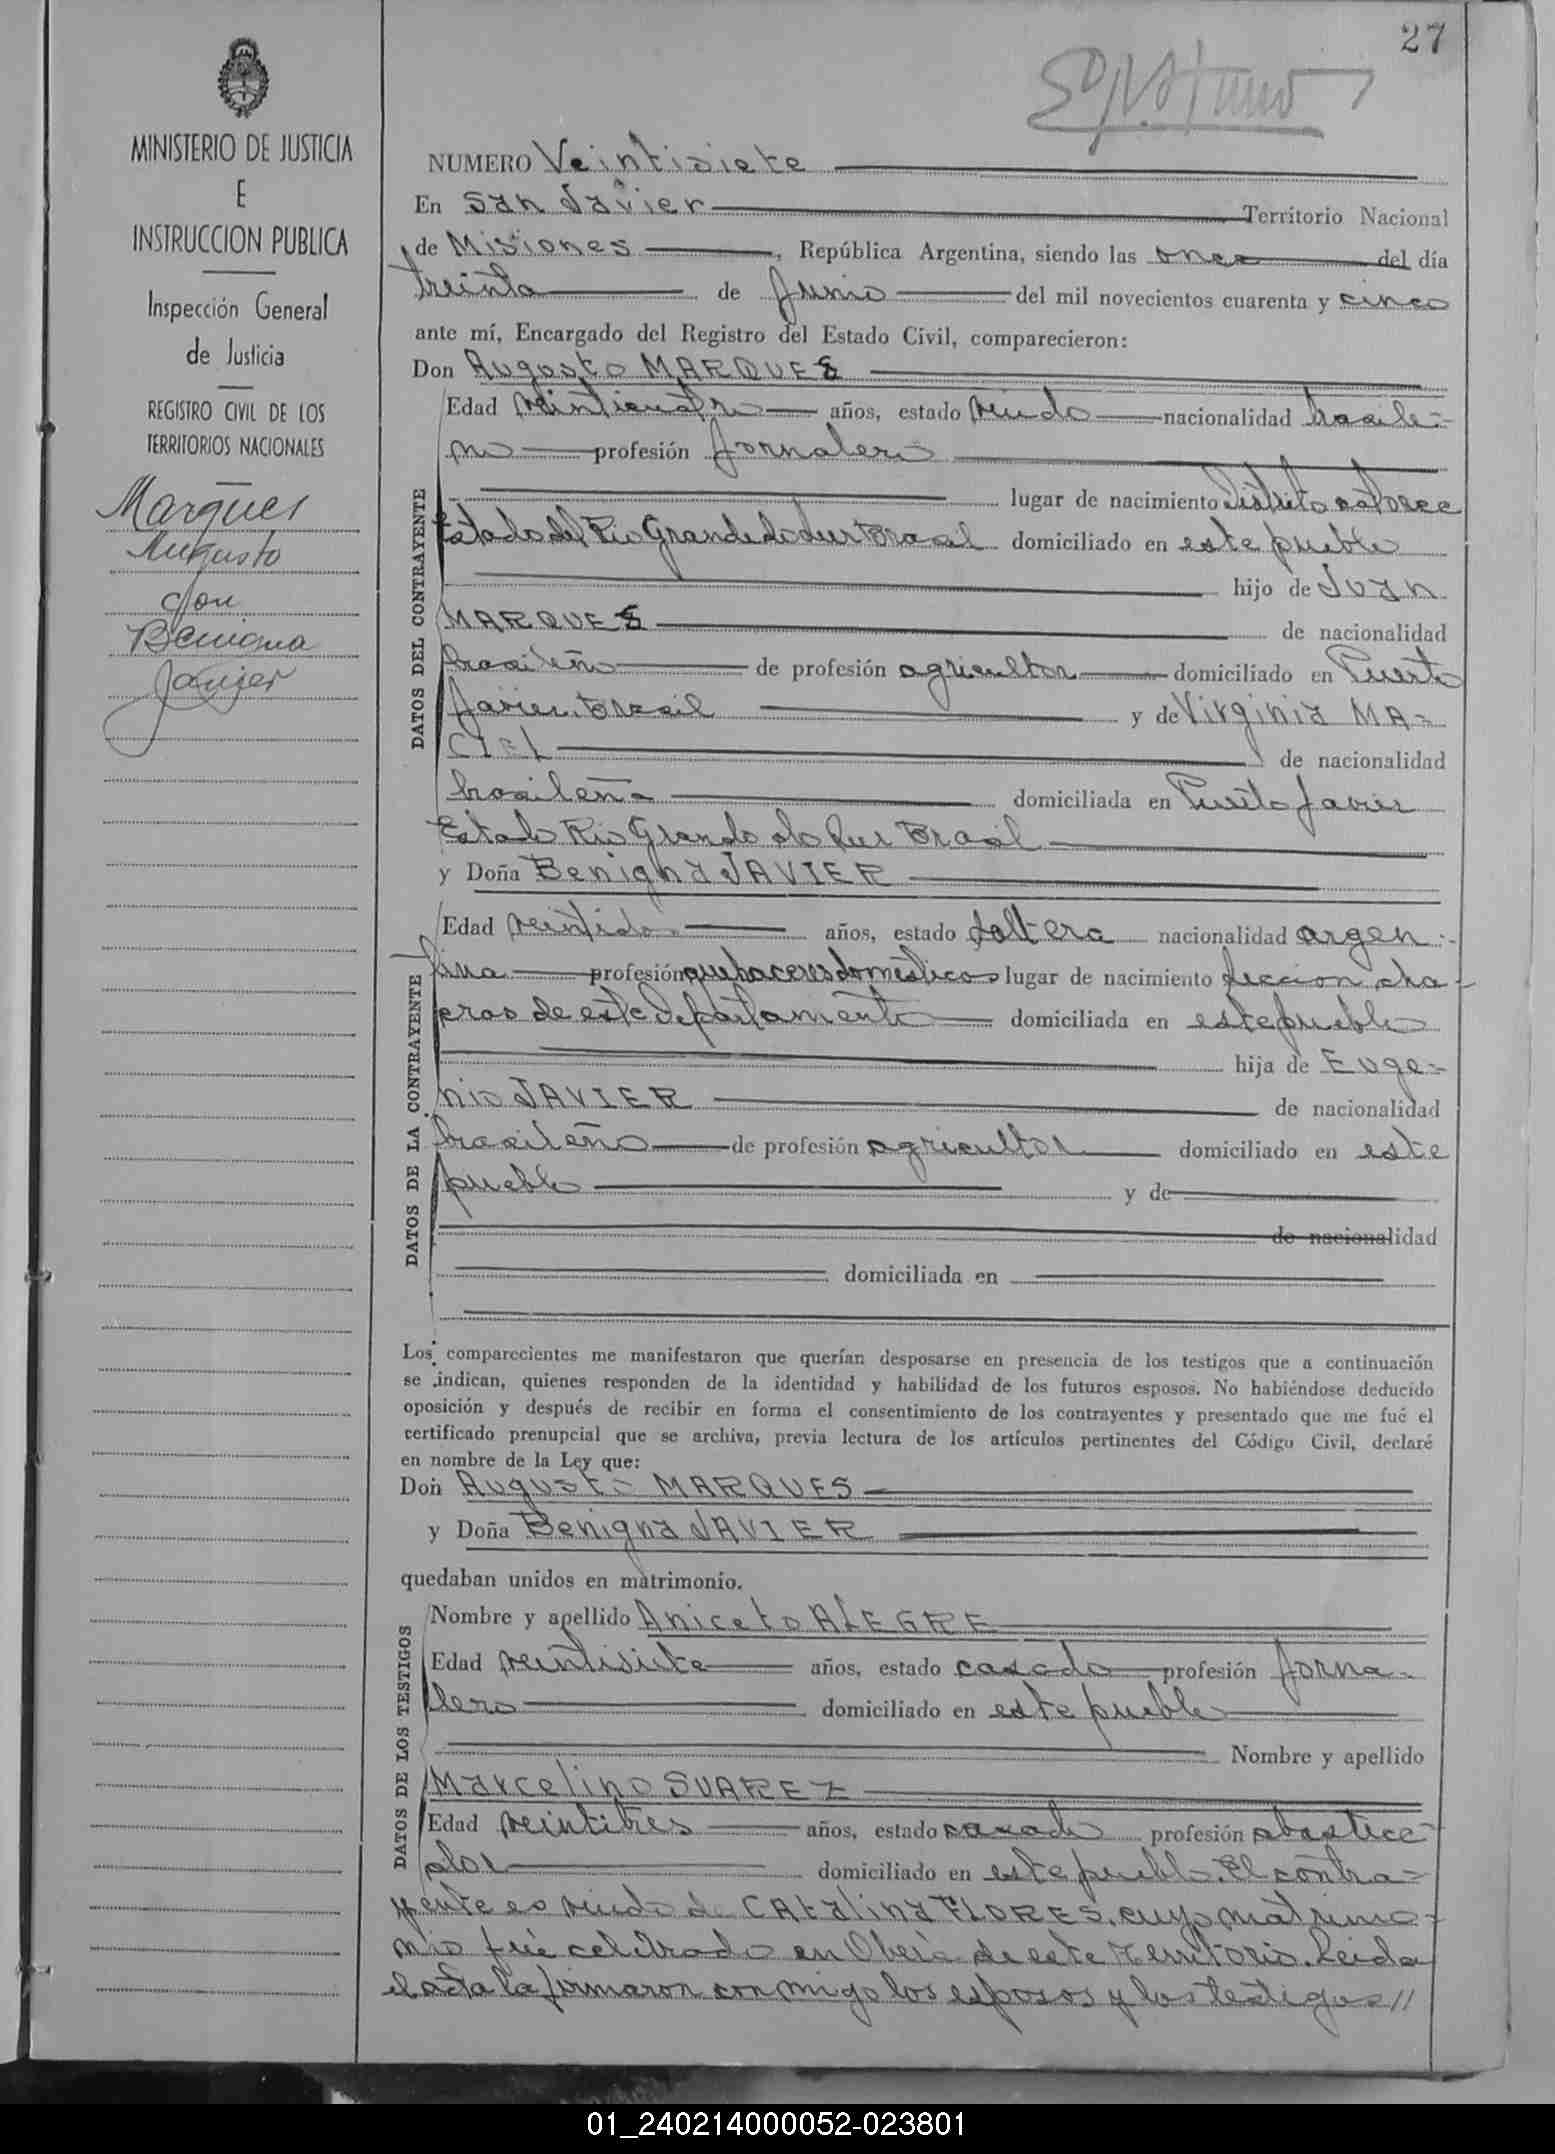 27
MINISTERIO DE JUSTICIA
E
INSTRUCCION PUBLICA
Inspección General
de Justicia
REGISTRO CIVIL DE LOS
TERRITORIOS NACIONALES
Marques
Augusto
con
Benigna
Javier
NUMERO Veintisiete
En San Javier Territorio Nacional
de Misiones, República Argentina, siendo las once del día
treinta de Junio del mil novecientos cuarenta y cinco
ante mí, Encargado del Registro del Estado Civil, comparecieron:
Don Augusto MARQUES
DATOS DEL CONTRAYENTE
Edad veinticuatro años, estado viudo nacionalidad brasile=
ño profesión jornalero
lugar de nacimiento Distrito
Estado del Rio Grande do Sur Brasil domiciliado en este pueblo
hijo de Juan
MARQUES de nacionalidad
brasileño de profesión agricultor domiciliado en Puerto
Javier. Brasil y de Virginia MA=
CIEL de nacionalidad
brasileña domiciliada en Puerto Javier
Estado Rio Grande do Sur Brasil
y Doña Benigna JAVIER
DATOS DE LA CONTRAYENTE
Edad veintidos años, estado soltera nacionalidad argen=
tina profesión quehaceres domésticos lugar de nacimiento seccion cha=
cras de este departamento domiciliada en este pueblo
hija de Euge=
nio JAVIER de nacionalidad
brasileño de profesión agricultor domiciliado en este
pueblo y de
de nacionalidad
domiciliada en
Los comparecientes me manifestaron que querían desposarse en presencia de los testigos que a continuación
se indican, quienes responden de la identidad y habilidad de los futuros esposos. No habiéndose deducido
oposición y después de recibir en forma el consentimiento de los contrayentes y presentado que me fué el
certificado prenupcial que se archiva, previa lectura de los artículos pertinentes del Código Civil, declaré
en nombre de la Ley que:
Don Augusto MARQUES
y Doña Benigna JAVIER
quedaban unidos en matrimonio.
DATOS DE LOS TESTIGOS
Nombre y apellido Aniceto ALEGRE
Edad veintisiete años, estado casado profesión jorna=
lero domiciliado en este pueblo
Nombre y apellido
Marcelino SUAREZ
Edad veintitres años, estado casado profesión abastece=
dor domiciliado en este pueblo. El contra=
yente es viudo de Catalina FLORES, cuyo matrimo=
nio fué celebrado en Oberá de este Territorio. Leida
el acta la firmaron conmigo los esposos y los testigos //
01_240214000052-023801